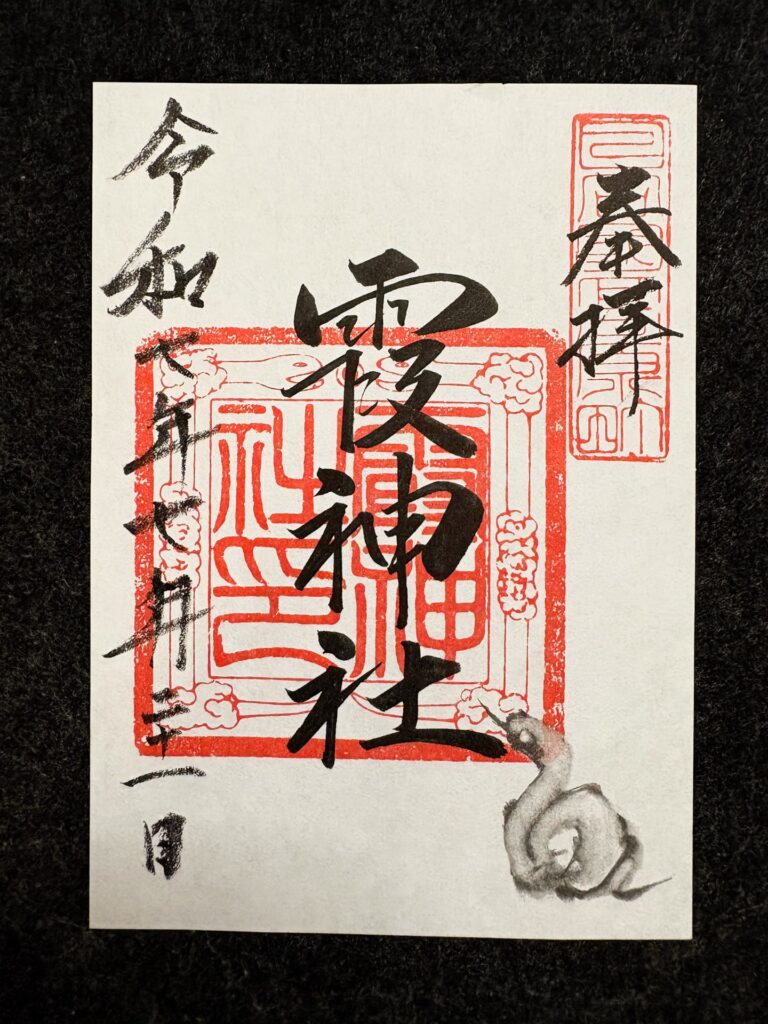 奉拝
霞神社
霞神
社印
令和七年七月二十一日